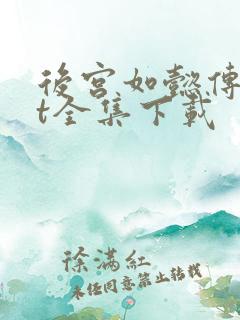 後宫如懿傳
t全集下載
徐满紅
未经同意禁止转载